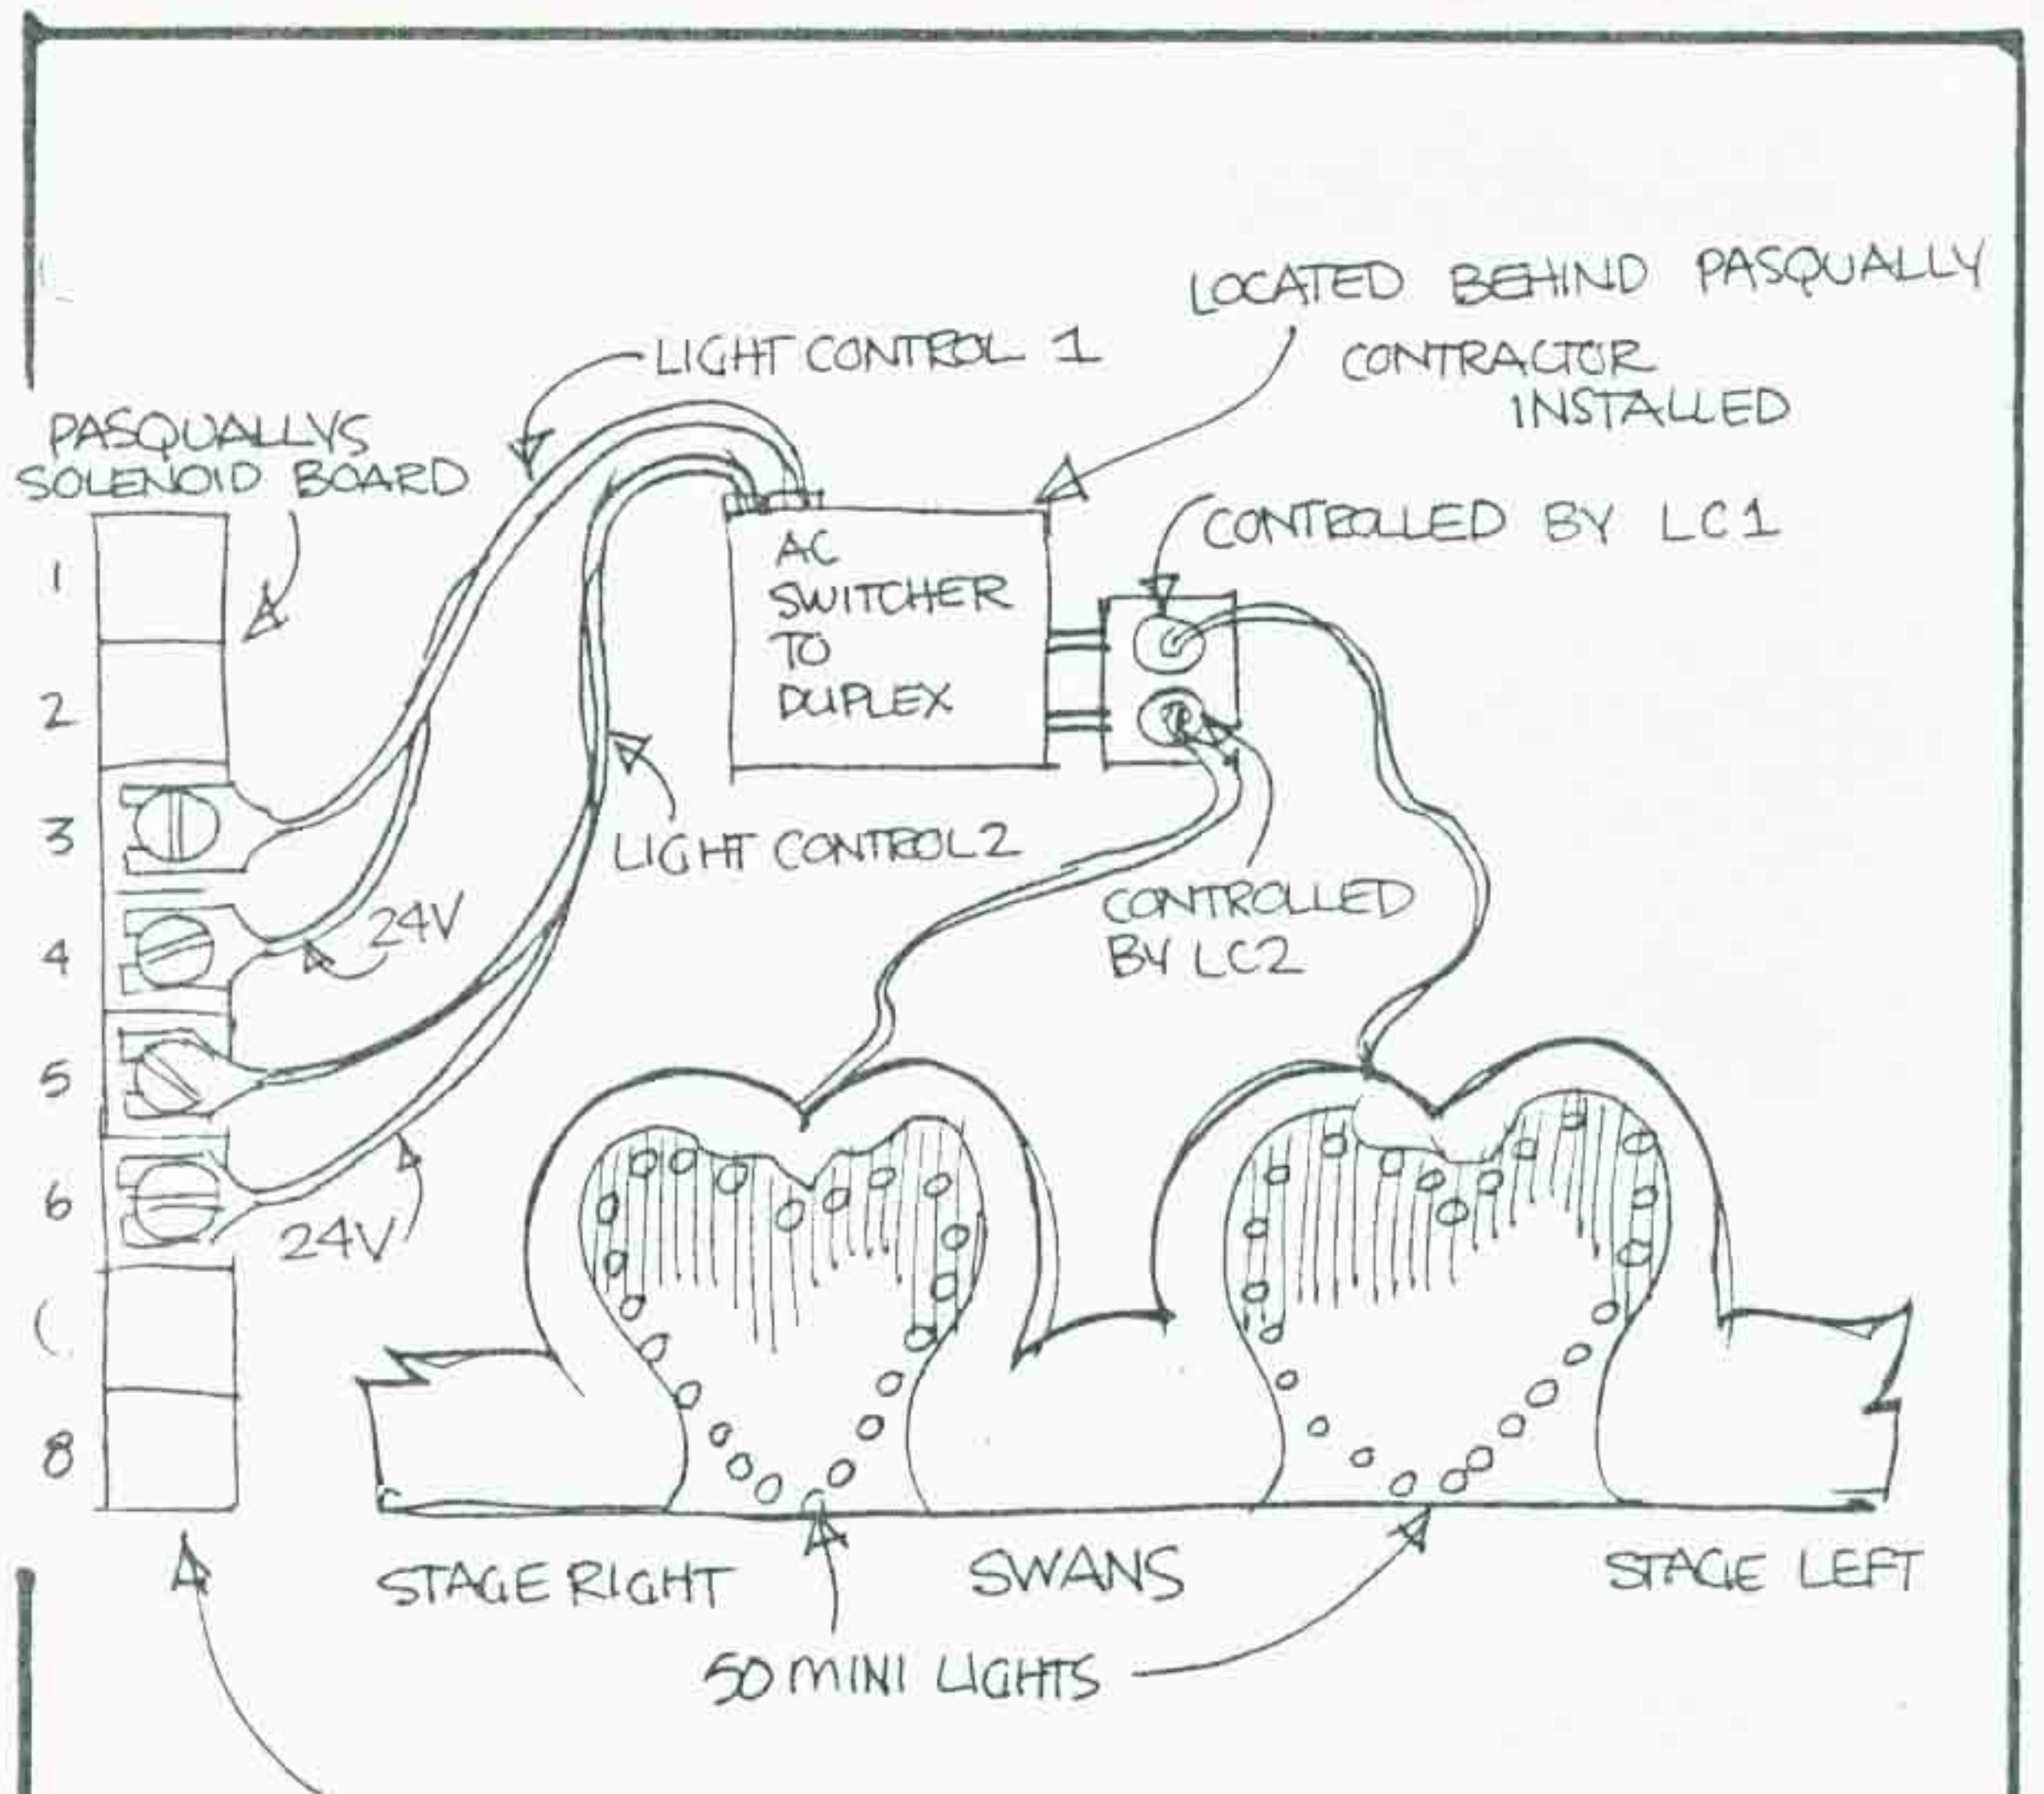 LOCATED BEHIND PASQUALLY
CONTRACTOR
INSTALLED
LIGHT CONTROL 1
PASQUALLYS
SOLENOID BOARD
CONTROLLED BY LC1
AC
SWITCHER
TO
DUPLEX
1
2
3
4
5
6
8
LIGHT CONTROL 2
24V
CONTROLLED
BY LC2
24V
STAGE RIGHT
SWANS
STAGE LEFT
50 MINI LIGHTS